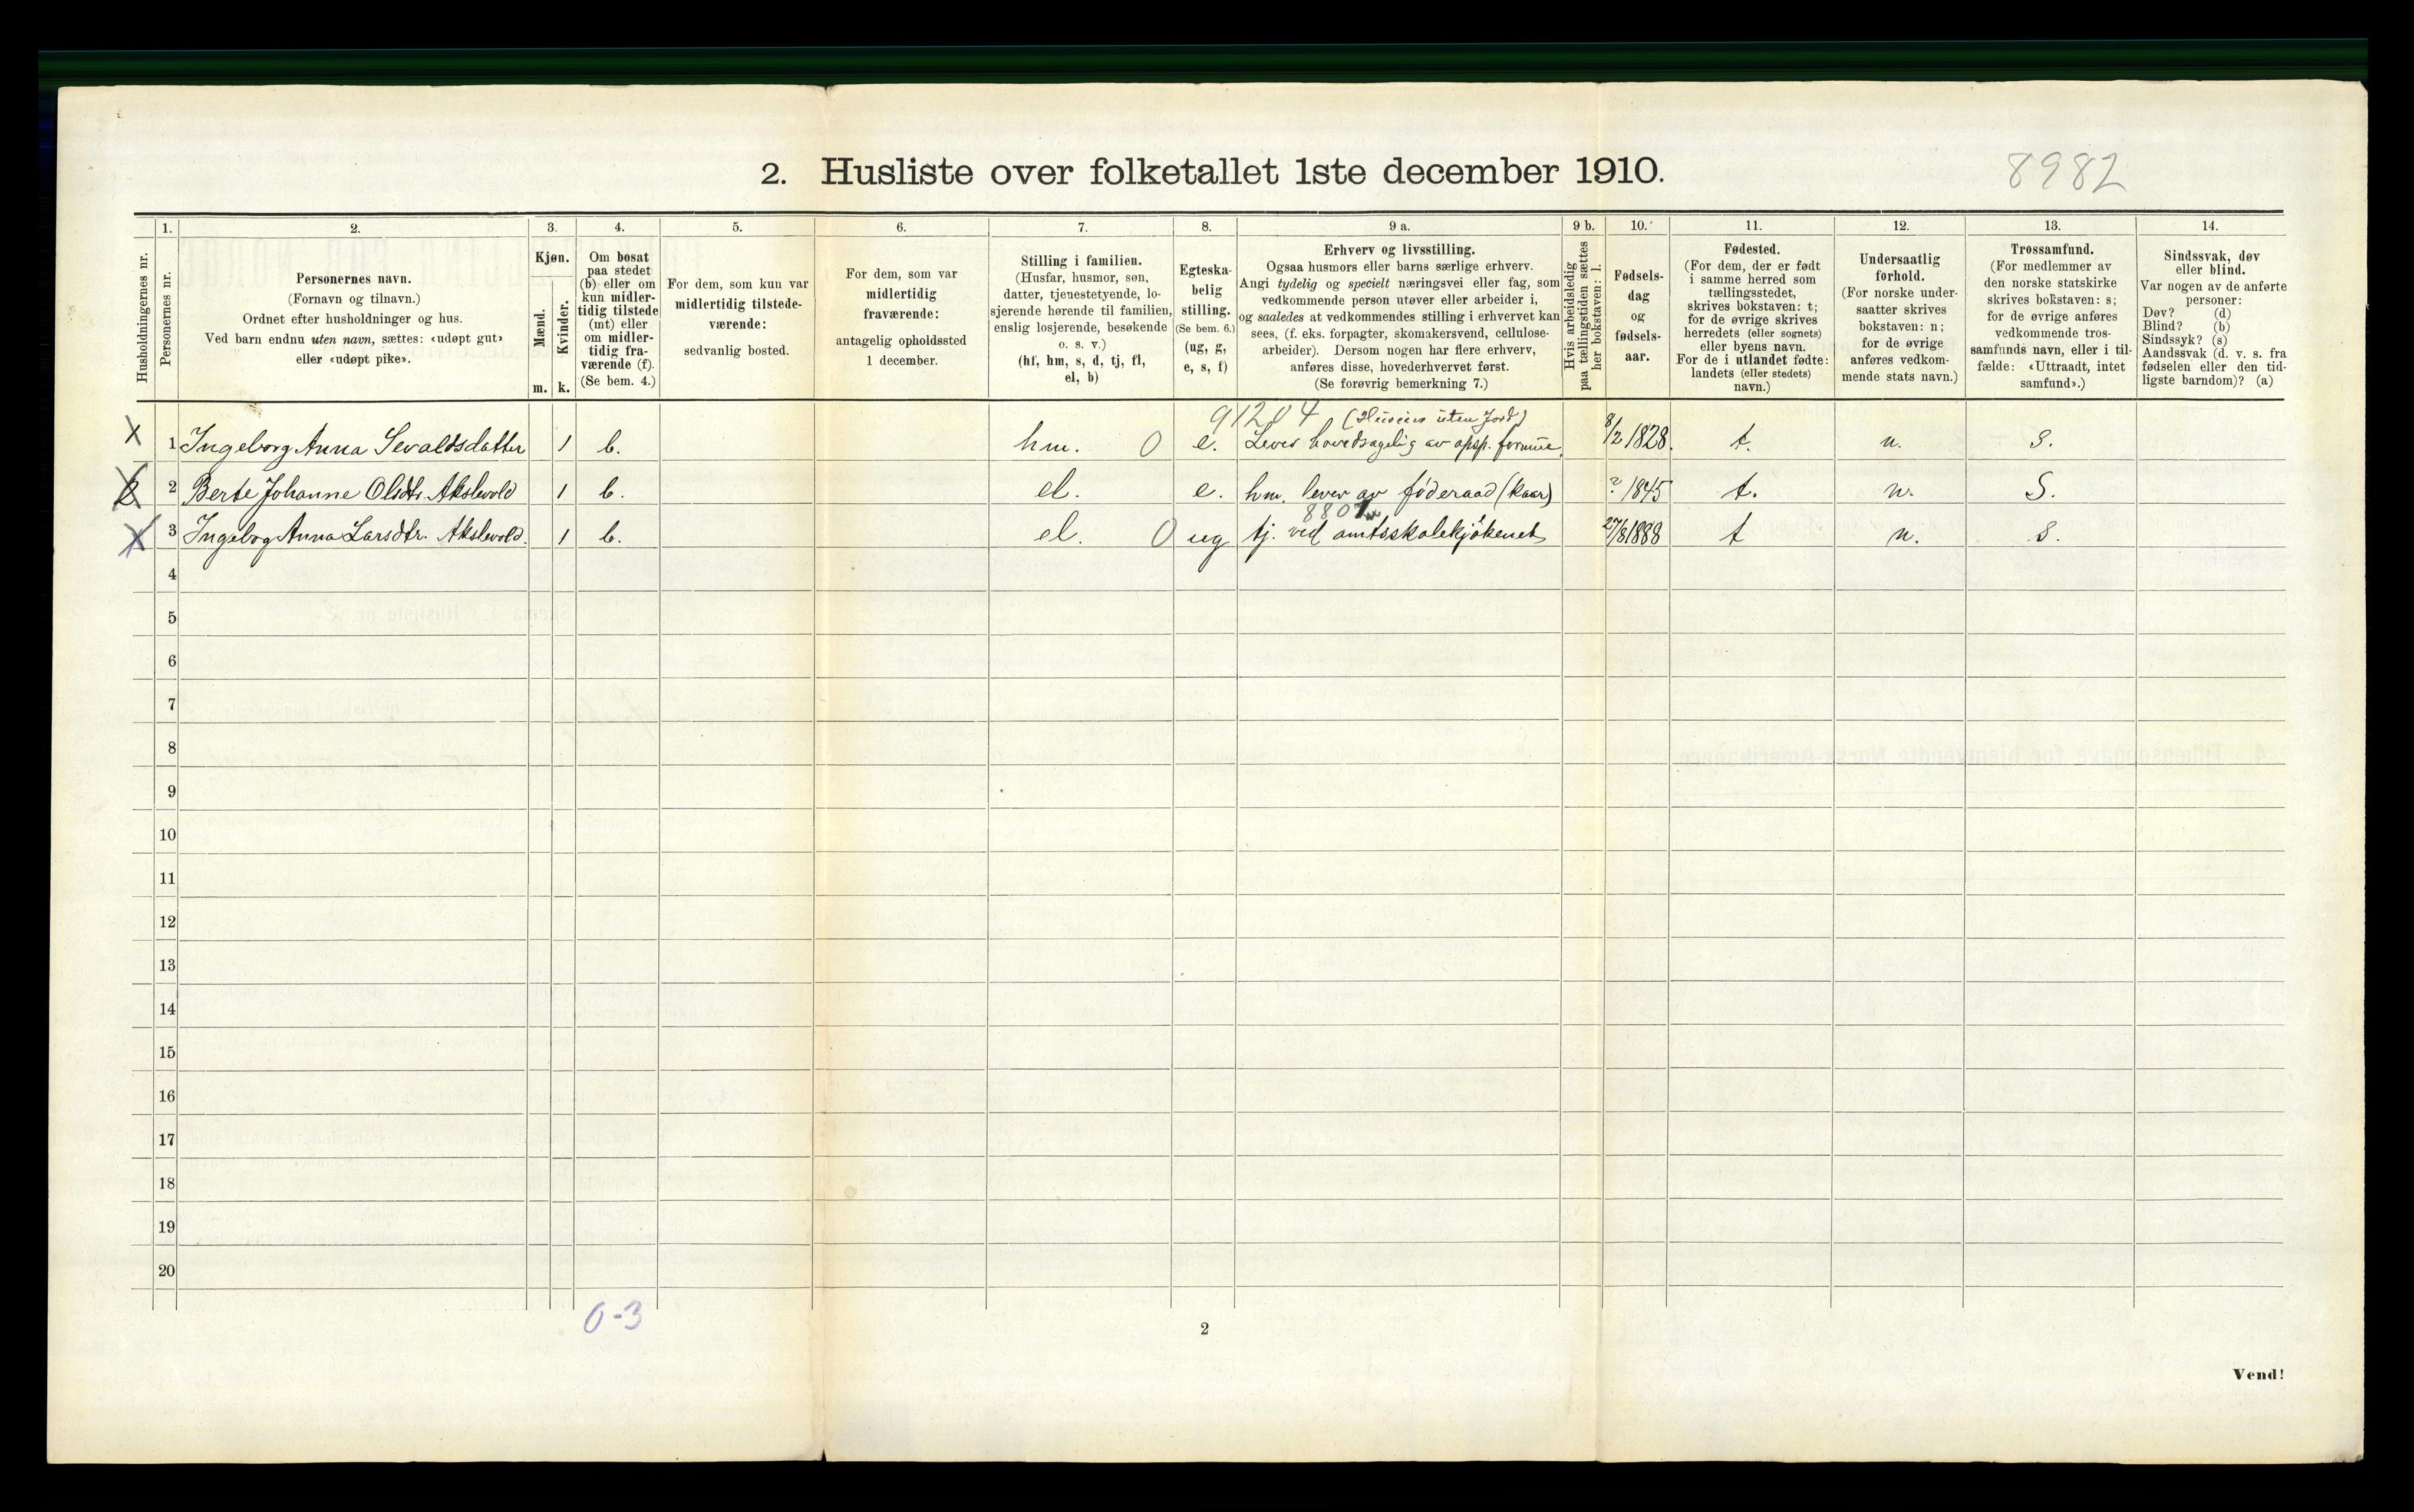 2. Husliste over folketallet 1ste december 1910.
8982
1. 2. 3. 4. 5. 6. 7. 8. 9 a. 9 b. 10. 11. 12. 13. 14.
Husholdningernes nr.
Personernes nr.
Personernes navn.
(Fornavn og tilnavn.)
Ordnet efter husholdninger og hus.
Ved barn endnu uten navn, sættes: «udøpt gut»
eller «udøpt pike».
Kjøn.
Mænd.
Kvinder.
m. k.
Om bosat
paa stedet
(b) eller om
kun midler-
tidig tilstede
(mt) eller
om midler-
tidig fra-
værende (f).
(Se bem. 4.)
For dem, som kun var
midlertidig tilstede-
værende:
sedvanlig bosted.
For dem, som var
midlertidig
fraværende:
antagelig opholdssted
1 december.
Stilling i familien.
(Husfar, husmor, søn,
datter, tjenestetyende, lo-
sjerende hørende til familien,
enslig losjerende, besøkende
o. s. v.)
(hf, hm, s, d, tj, fl,
el, b)
Egteska-
belig
stilling.
(Se bem. 6.)
(ug, g,
e, s, f)
Erhverv og livsstilling.
Ogsaa husmors eller barns særlige erhverv.
Angi tydelig og specielt næringsvei eller fag, som
vedkommende person utøver eller arbeider i,
og saaledes at vedkommendes stilling i erhvervet kan
sees, (f. eks. forpagter, skomakersvend, cellulose-
arbeider). Dersom nogen har flere erhverv,
anføres disse, hovederhvervet først.
(Se forøvrig bemerkning 7.)
Hvis arbeidsledig
paa tællingstiden sættes
her bokstaven: l.
Fødsels-
dag
og
fødsels-
aar.
Fødested.
(For dem, der er født
i samme herred som
tællingsstedet,
skrives bokstaven: t;
for de øvrige skrives
herredets (eller sognets)
eller byens navn.
For de i utlandet fødte:
landets (eller stedets)
navn.)
Undersaatlig
forhold.
(For norske under-
saatter skrives
bokstaven: n;
for de øvrige
anføres vedkom-
mende stats navn.)
Trossamfund.
(For medlemmer av
den norske statskirke
skrives bokstaven: s;
for de øvrige anføres
vedkommende tros-
samfunds navn, eller i til-
fælde: «Uttraadt, intet
samfund».)
Sindssvak, døv
eller blind.
Var nogen av de anførte
personer:
Døv? (d)
Blind? (b)
Sindssyk? (s)
Aandssvak (d. v. s. fra
fødselen eller den tid-
ligste barndom)? (a)
91204 (Huseier uten Jord)
X 1 Ingeborg Anna Sevaldsdatter 1 b. hm. 0 e. Lever hovedsagelig av opsp. formue. 8/2 1828. t. n. S.
X 2 Berte Johanne Olsdtr. Akslevold 1 b. el. e. hm. lever av føderaad (kaar) ? 1845 t. n. S.
8807
X 3 Ingebog Anna Larsdtr. Akslevold. 1 b. el. 0 ug tj. ved amtsskolekjøkenet 27/8 1888 t n. S.
4
5
6
7
8
9
10
11
12
13
14
15
16
17
18
19
20
0-3
2
Vend!